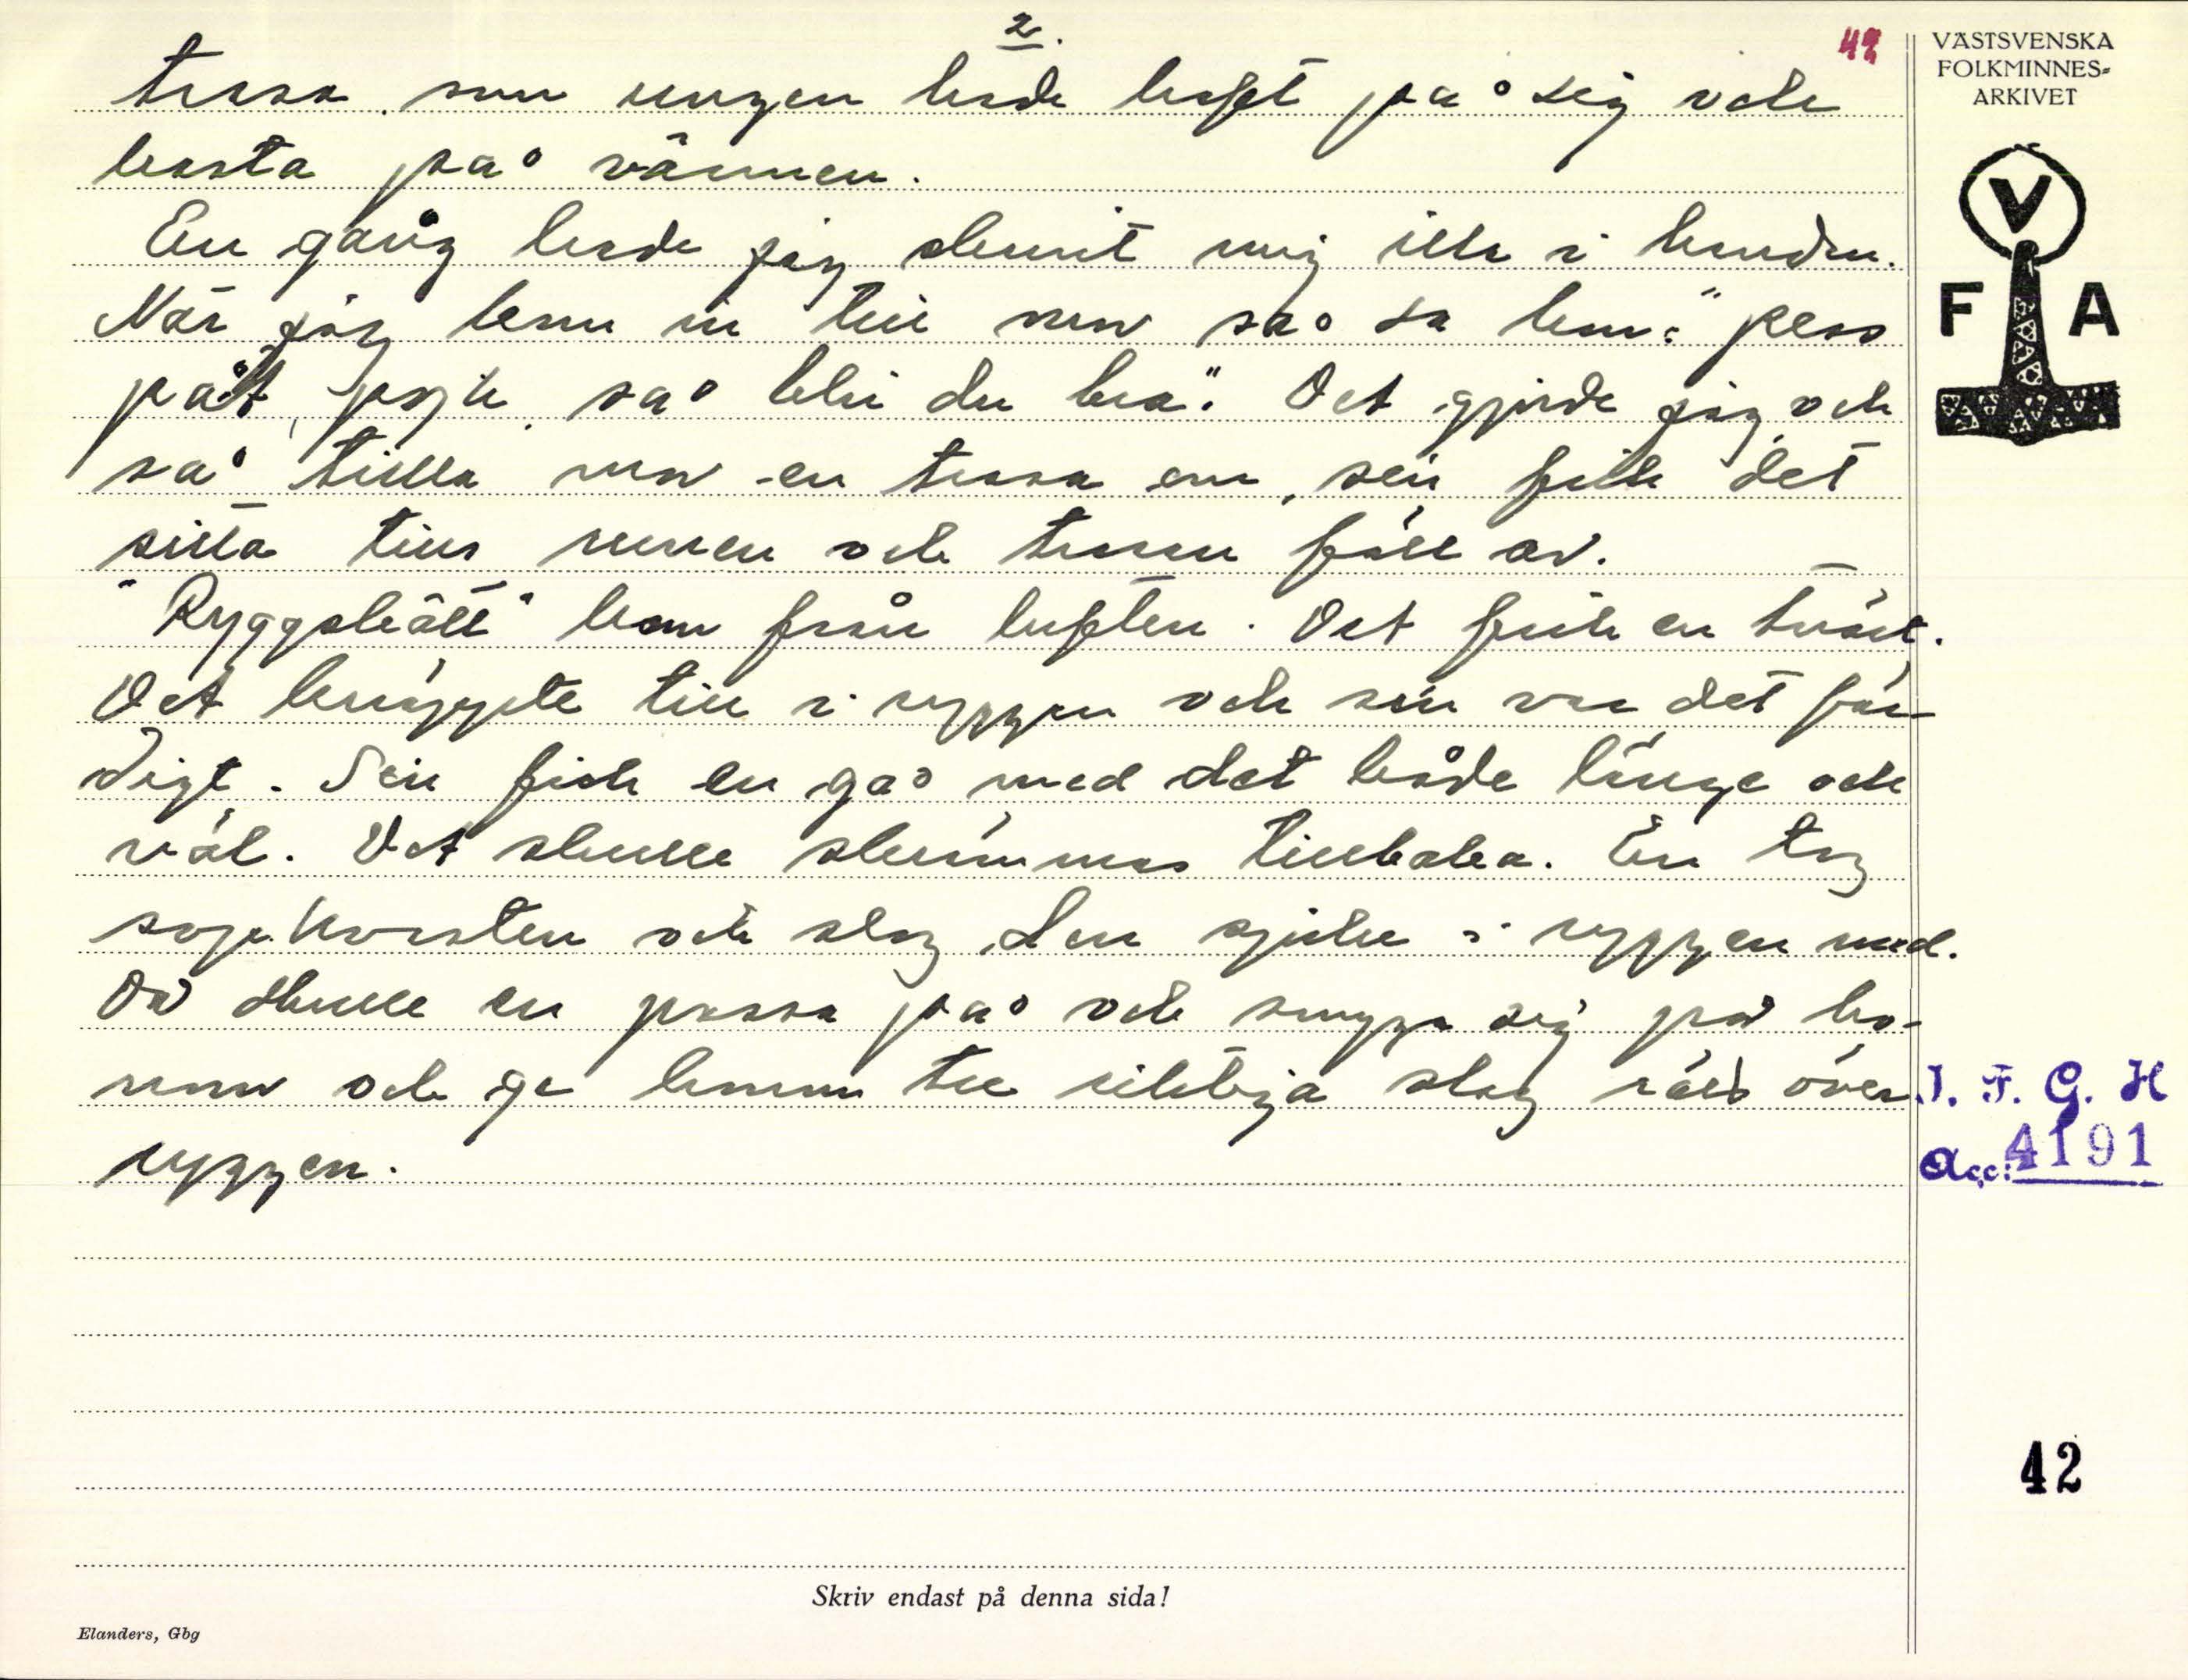 2.
42
trasa som ungen hade haft på sig och
kasta på vännen.
En gång hade jag skurit mig illa i handen.
När jag kom in till mor så sa hon: "Pess
påt, pojk, så blir du bra". Det gjorde jag och
så linda mor en trasa om, sen fick det
sitta tills senen och trasan föll av.
"Ryggskått" kom från luften. Det fick en tvärt.
Det knäppte till i ryggen och sen var det fär-
digt. Sen fick en gå med det både länge och
väl. Det skulle skrämmas tillbaka. En tog
sopekvasten och slog den sjuke i ryggen med.
Då skulle en passa på och smyga sig på ho-
nom och ge honom tre riktiga slag rätt över
ryggen.
VÄSTSVENSKA
FOLKMINNES-
ARKIVET
V
F A
I. F. G. H
Acc: 4191
42
Skriv endast på denna sida!
Elanders, Gbg